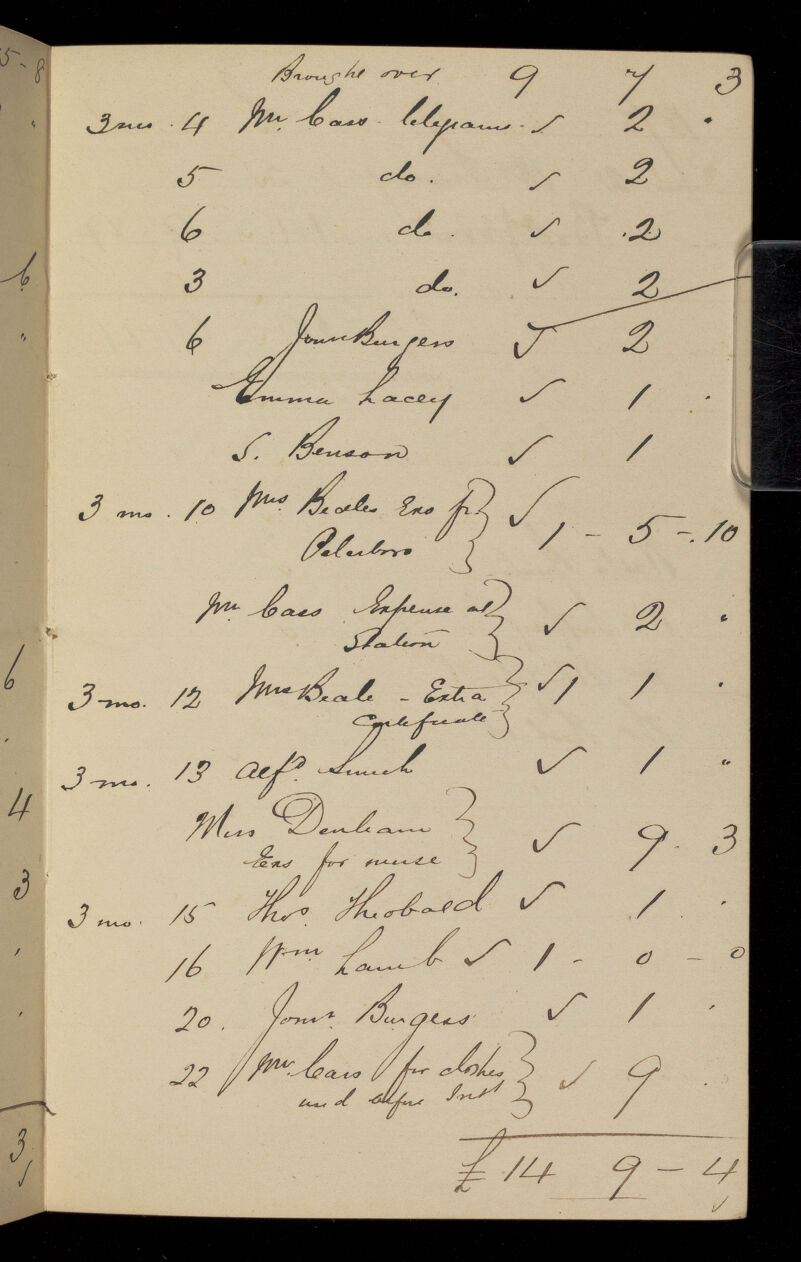 Brought over 9 7 3
3 mo. 4 Mr. Cass. telegrams. ✓ 2 "
5 do. ✓ 2
6 do. ✓ 2
3 do. ✓ 2
6 Jonn Burgess ✓ 2
Emma Lacey ✓ 1 .
S. Benson ✓ 1
3 mo. 10 Mrs. Beales Exs fr ✓ 1 - 5 - 10
Peterboro
Mr Cass Expense at ✓ 2 "
Station
3 mo. 12 Mrs Beale - Extra ✓ 1 1 .
Certificate
3 mo. 13 Alfd. Smith ✓ 1 "
Miss Denham ✓ 9. 3
Exs for nurse
3 mo. 15 Thos. Theobald ✓ 1 .
16 Wm Lamb ✓ 1 - 0 - 0
20. Jonn. Burgess ✓ 1 .
22 Mr Cass for clothes ✓ 9 .
and before Inst
£ 14 9 - 4
5 - 8
"
6
"
6
4
3
3